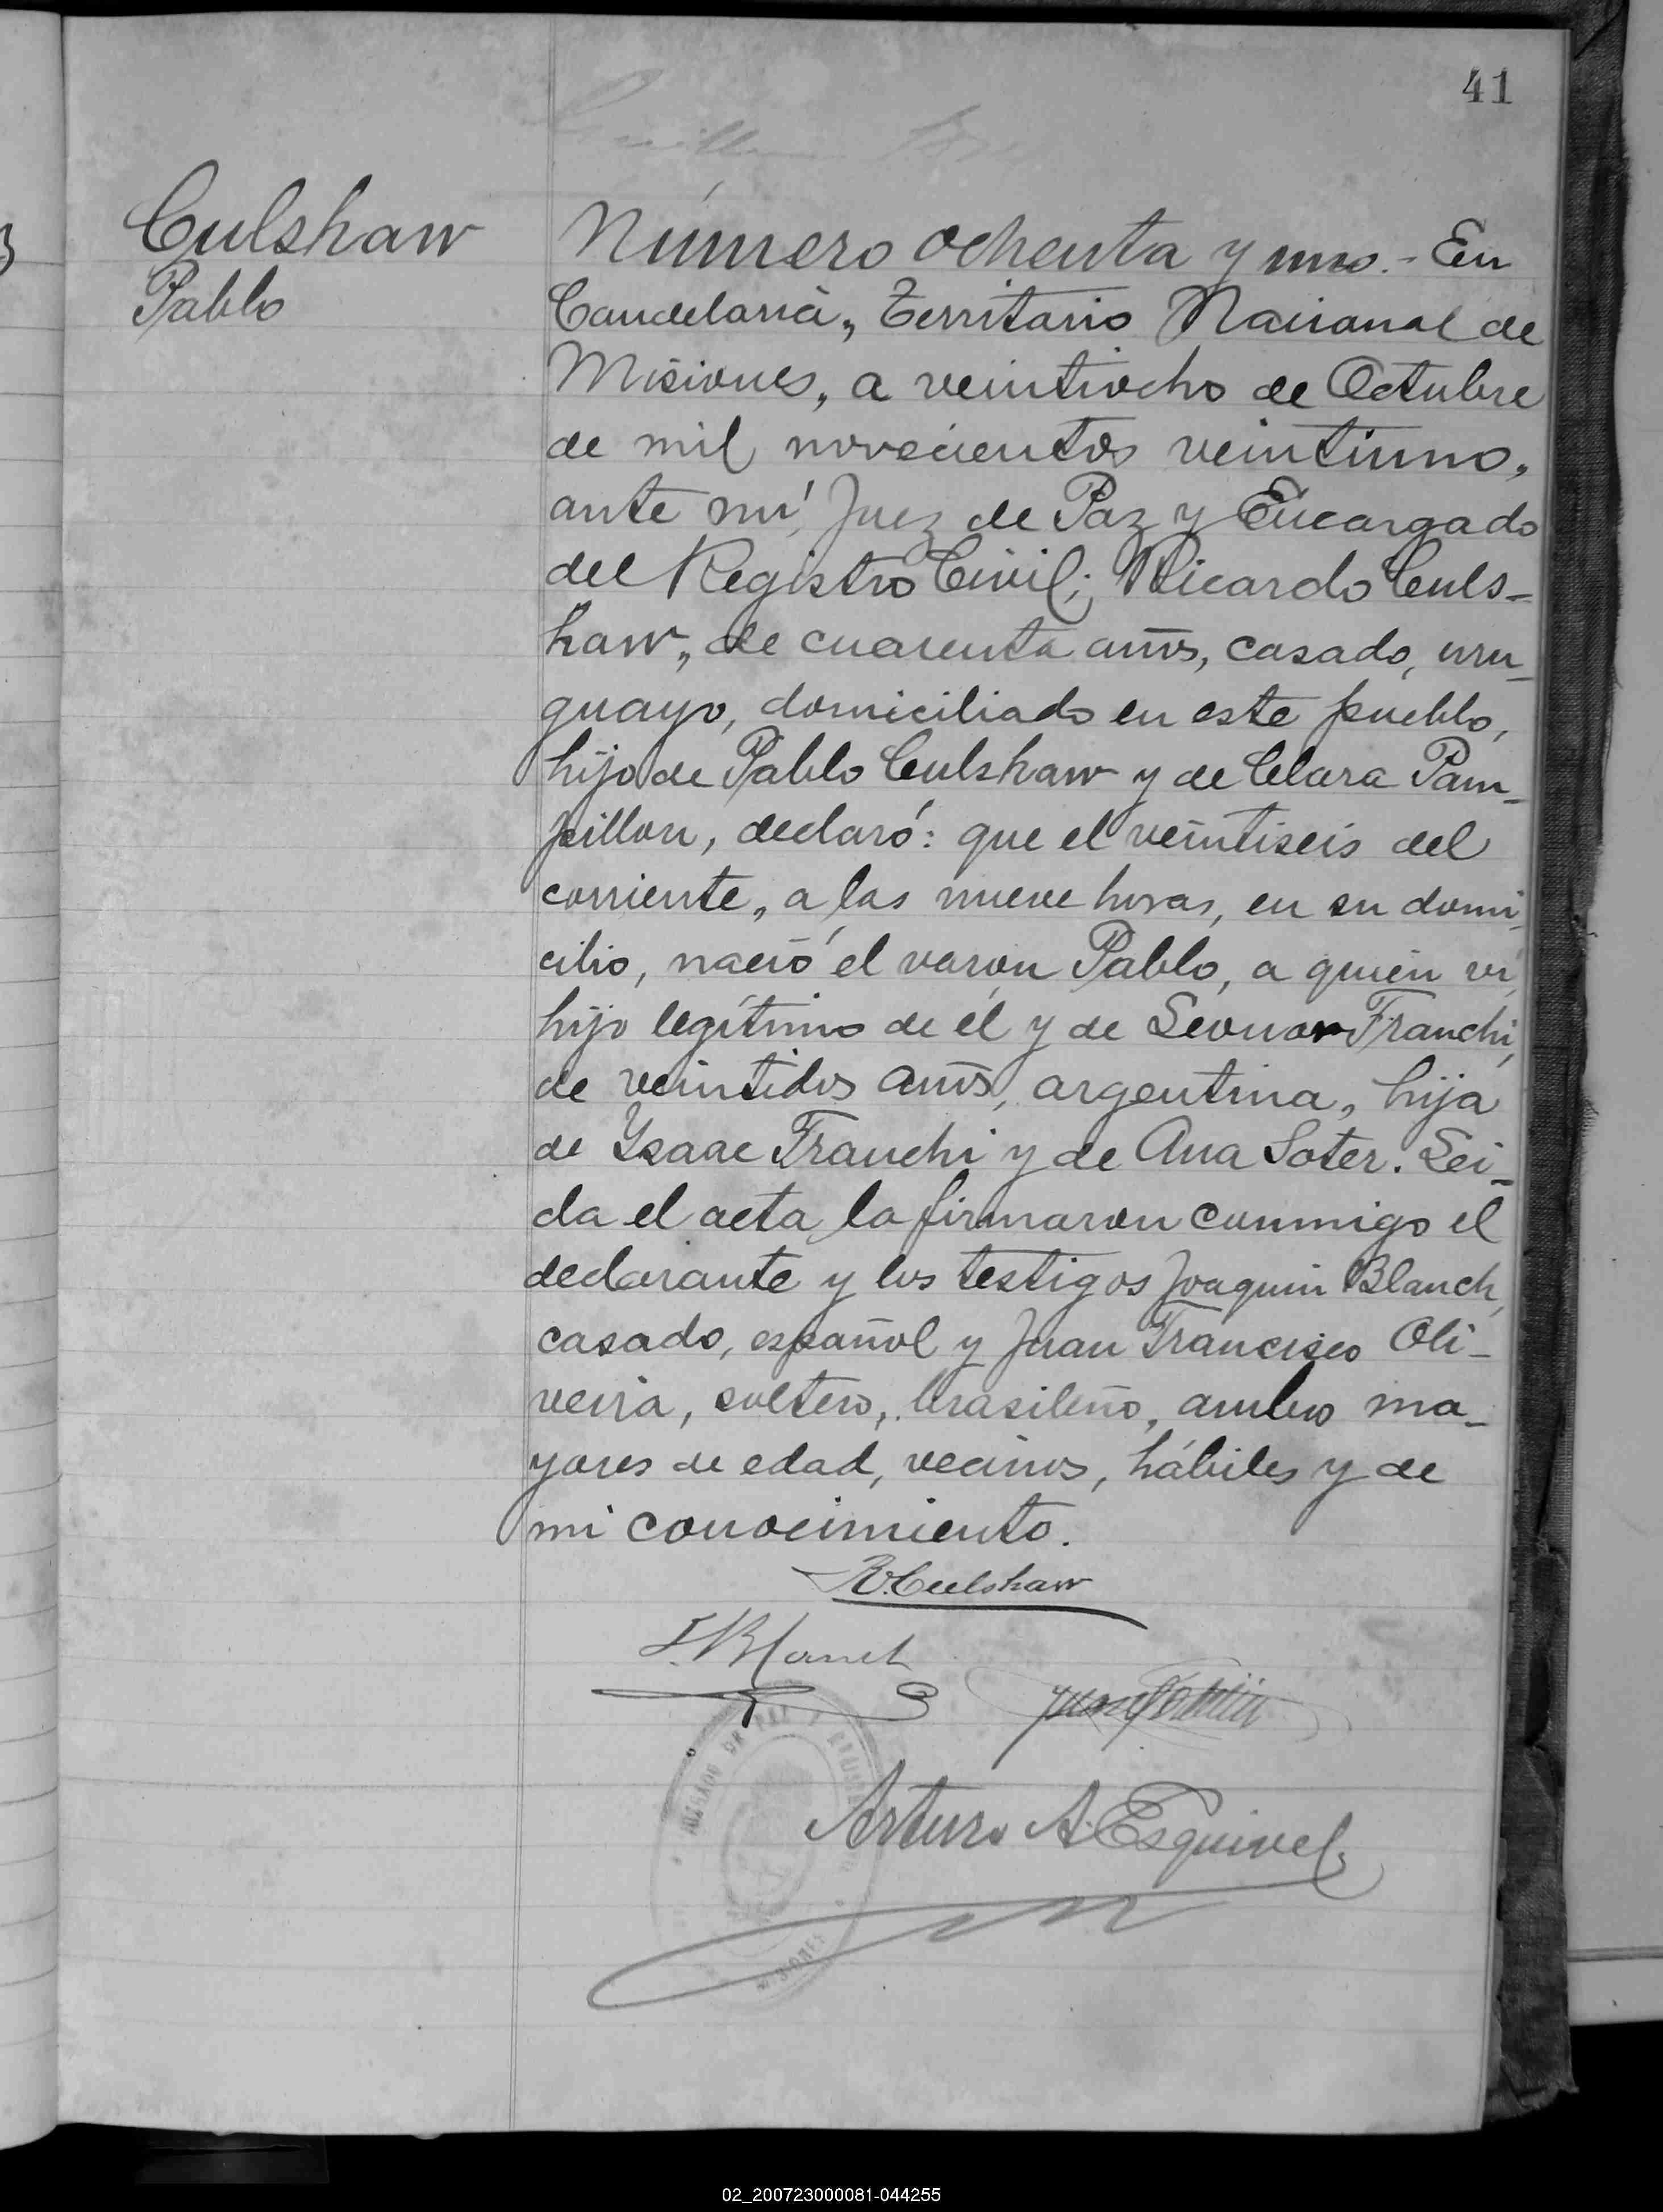 41
Culshaw
Pablo
Número ochenta y uno.- En
Candelaria, Territorio Nacional de
Misiones, a veintiocho de Octubre
de mil novecientos veintiuno,
ante mí, Juez de Paz y Encargado
del Registro Civil; Ricardo Culs-
haw, de cuarenta años, casado, uru-
guayo, domiciliado en este pueblo,
hijo de Pablo Culshaw y de Clara Pam-
pillon, declaró: que el veintiseis del
corriente, a las nueve horas, en su domi-
cilio, nació el varon Pablo, a quien vi,
hijo legítimo de él y de Leonor Franchi,
de veintidos años, argentina, hija
de Ysaac Franchi y de Ana Soter. Lei-
da el acta la firmaron conmigo el
declarante y los testigos Joaquin Blanch,
casado, español y Juan Francisco Oli-
veira, soltero, brasileño, ambos ma-
yores de edad, vecinos, hábiles y de
mi conocimiento.
R. Culshaw
J. Blanch
Arturo A. Esquivel
JUZGADO DE PAZ Y
MISIONES
02_200723000081-044255